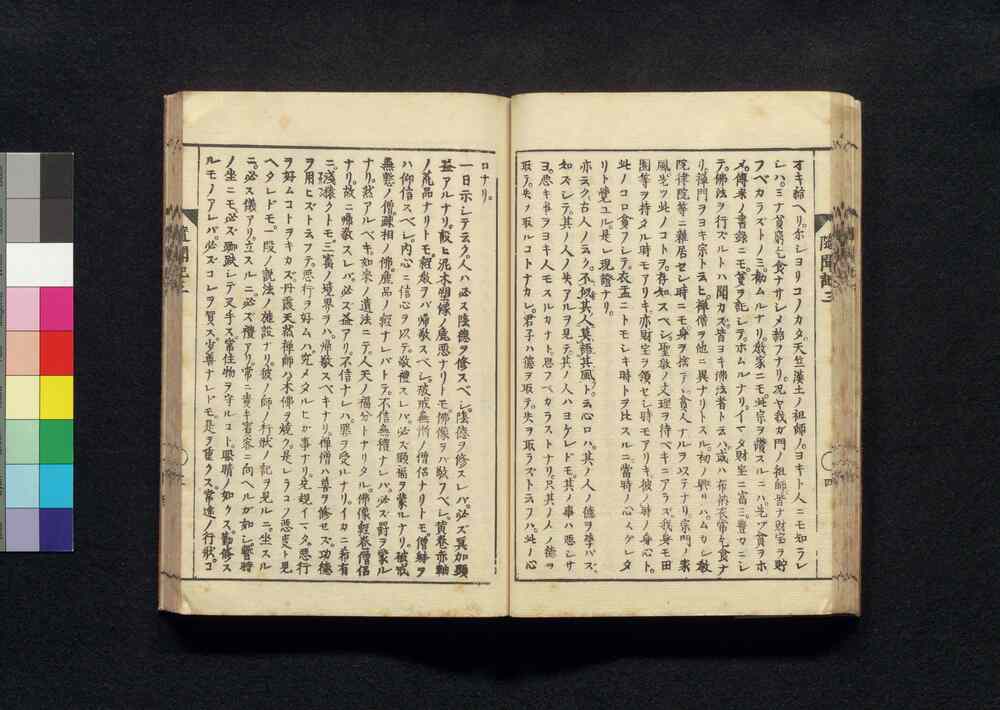 オキ給ヘリ。尓シヨリコノカタ天竺漢土ノ祖師ノ。ヨキト人ニモ知ラレ
シハ。ミナ貧窮乞食ナサシメ給フナリ。況ヤ我ガ門ノ祖師皆ナ財宝ヲ貯
フベカラズトノミ勧ムルナリ。教家ニモ此宗ヲ讃スルニハ。先ヅ貧ヲホ
メ。傳来ノ書録ニモ。貧ヲ記シテ。ホムルナリ。イマダ財宝ニ富ミ豊カニシ
テ。佛法ヲ行ズルトハ聞カズ。皆ヨキ佛法者ト云ハ。或ハ布衲衣常乞食ナ
リ。禅門ヲヨキ宗ト云ヒ。禅僧ヲ他ニ異ナリトスル。初ノ興リハ。ムカシ教
院律院等ニ雜居セシ時ニモ。身ヲ捨テヽ貧人ナルヲ以テナリ。宗門ノ家
風先ヅ此ノコトヲ。存知スベシ。聖教ノ文理ヲ待ベキニアラズ。我身モ田
園等ヲ持タル時モアリキ。亦財宝ヲ領セシ時モアリキ。彼ノ時ノ身心ト。
此ノコロ貧フシテ。衣盂ニトモシキ時トヲ比スルニ。當時ノ心スグレタ
リト覺ユル。是レ現證ナリ。
亦云ク。古人ノ云ク。不似其人莫語其風ト。云心ロハ。其ノ人ノ德ヲ學バズ
知ズシテ。其ノ人ノ失アルヲ見テ。其ノ人ハヨケレドモ。其ノ事ハ悪シサ
ヨ。悪キ事ヲヨキ人モスルカナト。思フベカラズトナリ。只其ノ人ノ德ヲ
取テ。失ヲ取ルコトナカレ。君子ハ德ヲ取テ。失ヲ取ラズト云フハ。此ノ心
隨聞記三
四
ロナリ。
一日示シテ云ク。人ハ必ズ陰德ヲ修スベシ。陰德ヲ修スレバ。必ズ冥加顯
益アルナリ。設ヒ泥木塑像ノ麁悪ナリトモ。佛像ヲバ敬フベシ。黄卷赤軸
ノ荒品ナリトモ。經敎ヲバ帰敬スベシ。破戒無慚ノ僧侶ナリトモ。僧躰ヲ
ハ仰信スベシ。内心ニ信心ヲ以テ。敬禮スレバ。必ズ顯福ヲ蒙ルナリ。破戒
無慙ノ僧。疎相ノ佛。麁品ノ經ナレバトテ。不信無禮ナレバ。必ズ罰ヲ蒙ル
ナリ。然アルベキ。如來ノ遺法ニテ。人天ノ福分トナリタル。佛像經卷僧侶
ナリ。故ニ帰敬スレバ。必ズ益アリ。不信ナレハ。罪ヲ受ルナリ。イカニ希有
ニ淺猿クトモ。三寶ノ境界ヲハ。帰敬スベキナリ。禅僧ハ善ヲ修セズ。功德
ヲ用ヒズト云フテ。悪行ヲ好ムハ。究メタルヒガ事ナリ。先規イマダ。悪行
ヲ好ムコトヲキカズ。丹霞天然禅師ハ。木佛ヲ燒ク。是レラコソ悪事ト見
ヘタレドモ。一段ノ説法ノ施設ナリ。彼ノ師ノ行狀ノ記ヲ見ルニ。坐スル
ニ必ズ儀アリ。立スルニ必ズ禮アリ。常ニ貴キ賓客ニ向ヘルガ如シ。暫時
ノ坐ニモ。必ズ跏趺シテ。叉手ス。常住物ヲ守ルコト。眼睛ノ如クス。勤修ス
ルモノアレバ。必ズコレヲ賀ス。少善ナレドモ。是ヲ重クス。常途ノ行狀。コ